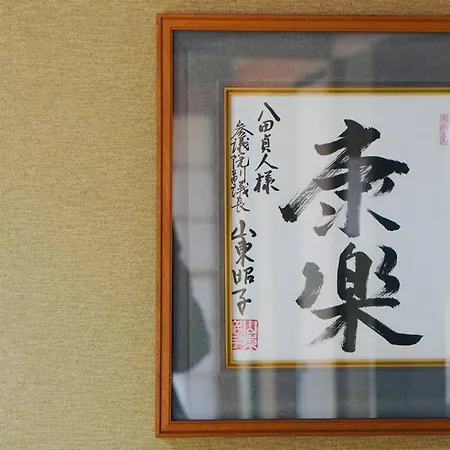 康楽
八田貞人様
参議院副議長
山東昭子
山東昭子